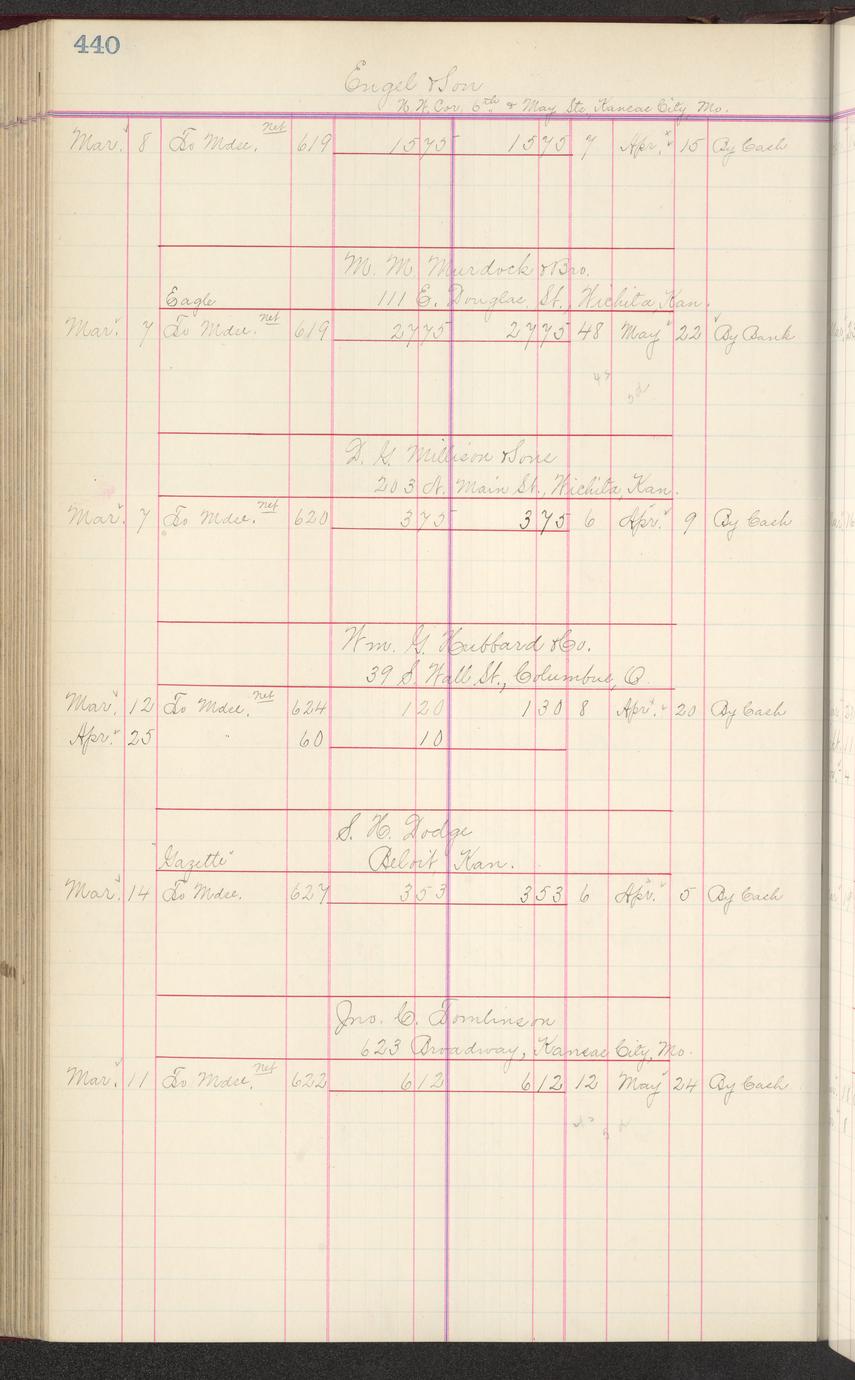 440
Engel & Son
N.W. Cor. 6th & May Sts, Kansas City, Mo.
Mar. 8 To Mdse. Net 619 1575 1575 7 Apr. 15 By Cash
M. M. Murdock & Bro.
Eagle 111 E. Douglas St., Wichita, Kan.
Mar. 7 To Mdse. Net 619 2775 2775 48 May 22 By Bank
D. G. Millison & Sons
203 N. Main St., Wichita, Kan.
Mar. 7 To Mdse. Net 620 375 375 6 Apr. 9 By Cash
Wm. G. Hubbard & Co.
39 S. Wall St., Columbus, O.
Mar. 12 To Mdse. Net 624 120 130 8 Apr. 20 By Cash
Apr. 25 " 60 10
S. H. Dodge
"Gazette" Beloit Kan.
Mar. 14 To Mdse. 627 353 353 6 Apr. 5 By Cash
Jno. C. Tomlinson
623 Broadway, Kansas City, Mo.
Mar. 11 To Mdse. Net 622 612 612 12 May 24 By Cash